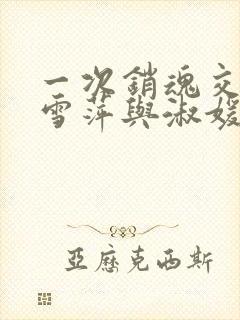 一次銷魂交
雪萍與淑媛
亞歷克西斯